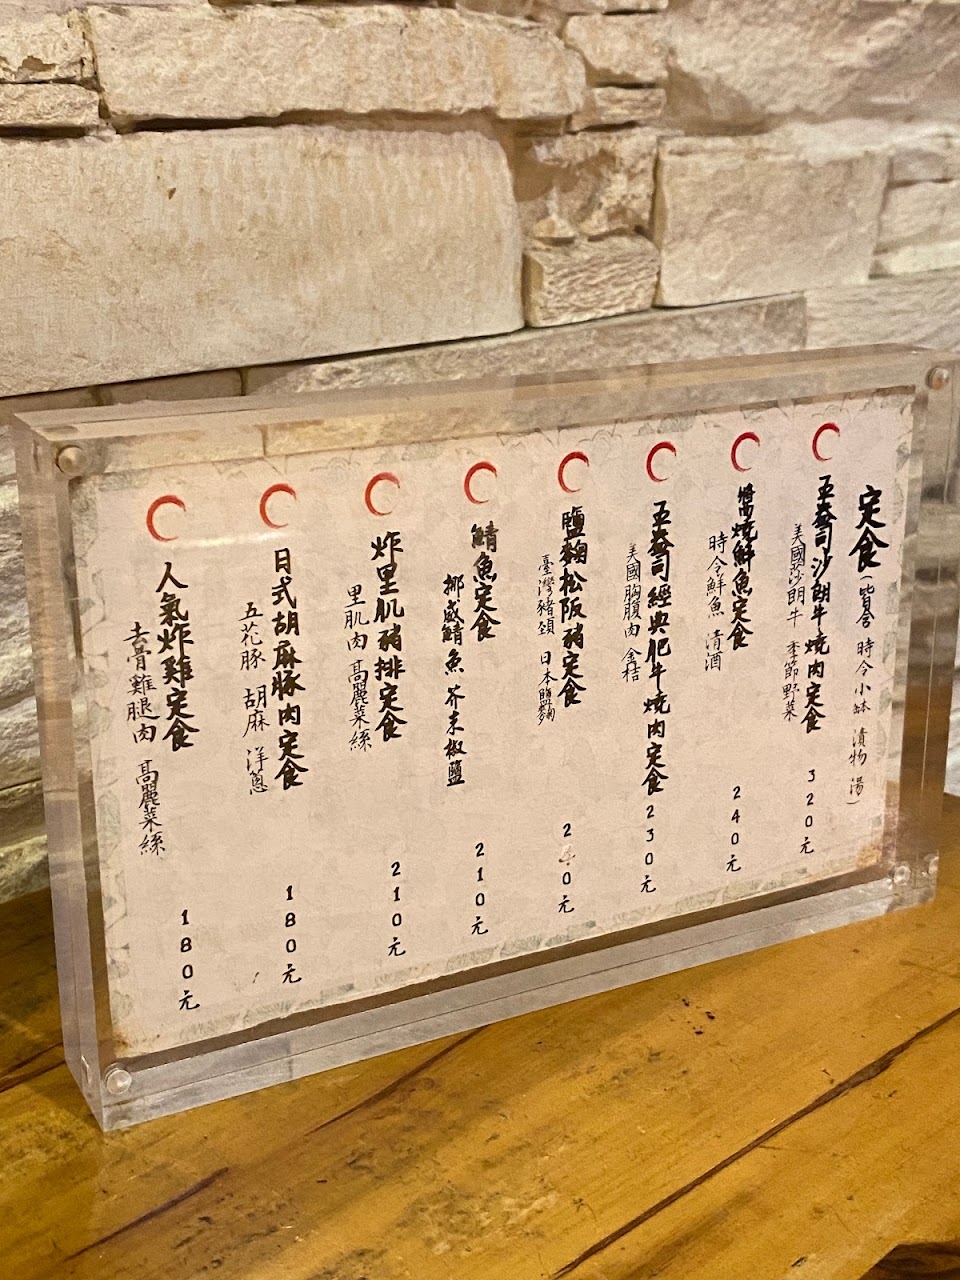 定食(皆含 時令小缽 漬物 湯)
沙朗牛燒肉定食 320元
美國沙朗牛 季節野菜
醬燒鮮魚定食 240元
時令鮮魚 清酒
經典肥牛燒肉定食 230元
美國胸腹肉 金桔
鹽麴松阪豬定食
臺灣豬頸 日本鹽麴
鯖魚定食 210元
挪威鯖魚 芥末椒鹽
炸里肌豬排定食 210元
里肌肉 高麗菜絲
日式胡麻豚肉定食 180元
五花豚 胡麻 洋蔥
人氣炸雞定食 180元
去骨雞腿肉 高麗菜絲